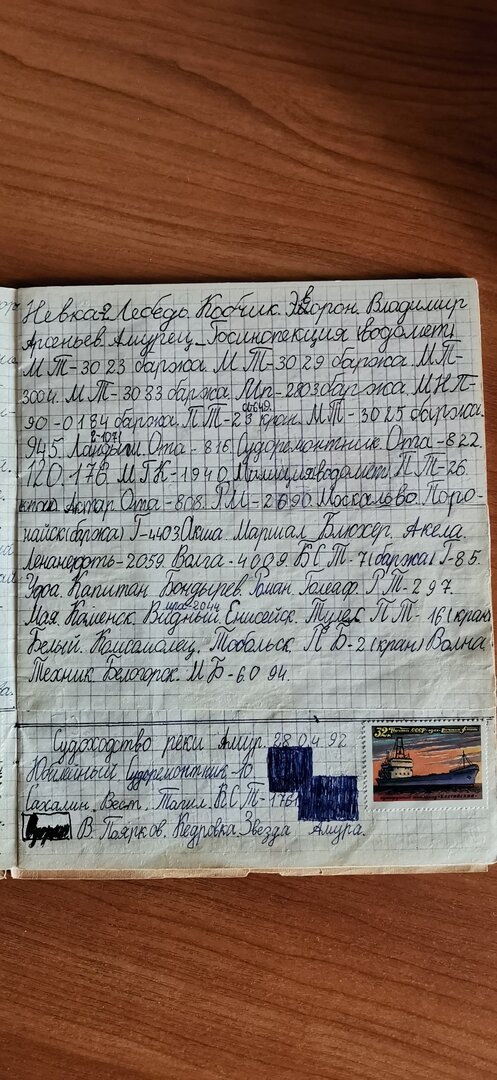 Невка-2 Лебедь. Кобчик. Эворон. Владимир
Арсеньев. Амурец. Госинспекция (водомет)
МТ-3023 баржа. МТ-3029 баржа. МП-
3004. МТ-3033 баржа. Мп-2803 баржа. МНП-
90-0184 баржа. ПТ-23 кран. МТ-3025 баржа.
945. Ландыш. Ота-816. Судоремонтник. Ота-822.
Г-1071
120. 176. МГК-1940. Милиция водомет. ПТ-26.
Актар. Ота-808. 2690. Москальво. Поро-
найск (баржа) Т-4403 Окша. Маршал Блюхер. Акела.
Ленанефть-2059. Волга-4009. КСТ-7 (баржа) Т-85.
Уфа. Капитан Бондырев. Роман Голеаф. РТ-297.
Мая. Каменск. Видный. Енисейск. ПТ-16 (кран)
2044
Белый. Комсомолец. Тобольск. ПБ-2 (кран) Волна.
Техник. Белогорск. МБ-6094.
Судоходство реки Амур. 28 04 92
Юбилейный Судоремонтник-10.
Сахалин. Вест. Тагил. КСТ-1761
В. Поярков. Кедровка. Звезда Амура.
32к
Почта СССР